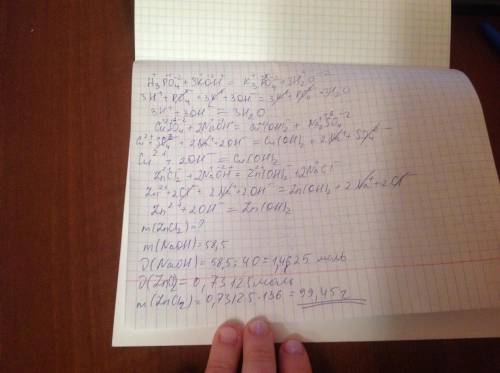 H₃PO₄ + 3KOH = K₃PO₄ + 3H₂O
3H⁺ + PO₄³⁻ + 3K⁺ + 3OH⁻ = 3K⁺ + PO₄³⁻ + 3H₂O
3H⁺ + 3OH⁻ = 3H₂O
CuSO₄ + 2NaOH = Cu(OH)₂ + Na₂SO₄
Cu²⁺ + SO₄²⁻ + 2Na⁺ + 2OH⁻ = Cu(OH)₂ + 2Na⁺ + SO₄²⁻
Cu²⁺ + 2OH⁻ = Cu(OH)₂
ZnCl₂ + 2NaOH = Zn(OH)₂ + 2NaCl
Zn²⁺ + 2Cl⁻ + 2Na⁺ + 2OH⁻ = Zn(OH)₂ + 2Na⁺ + 2Cl⁻
Zn²⁺ + 2OH⁻ = Zn(OH)₂
m(ZnCl₂) = ?
m(NaOH) = 58,5
D(NaOH) = 58,5 : 40 = 1,4625 моль
D(ZnCl₂) = 0,73125 моль
m(ZnCl₂) = 0,73125 · 136 = 99,45 г